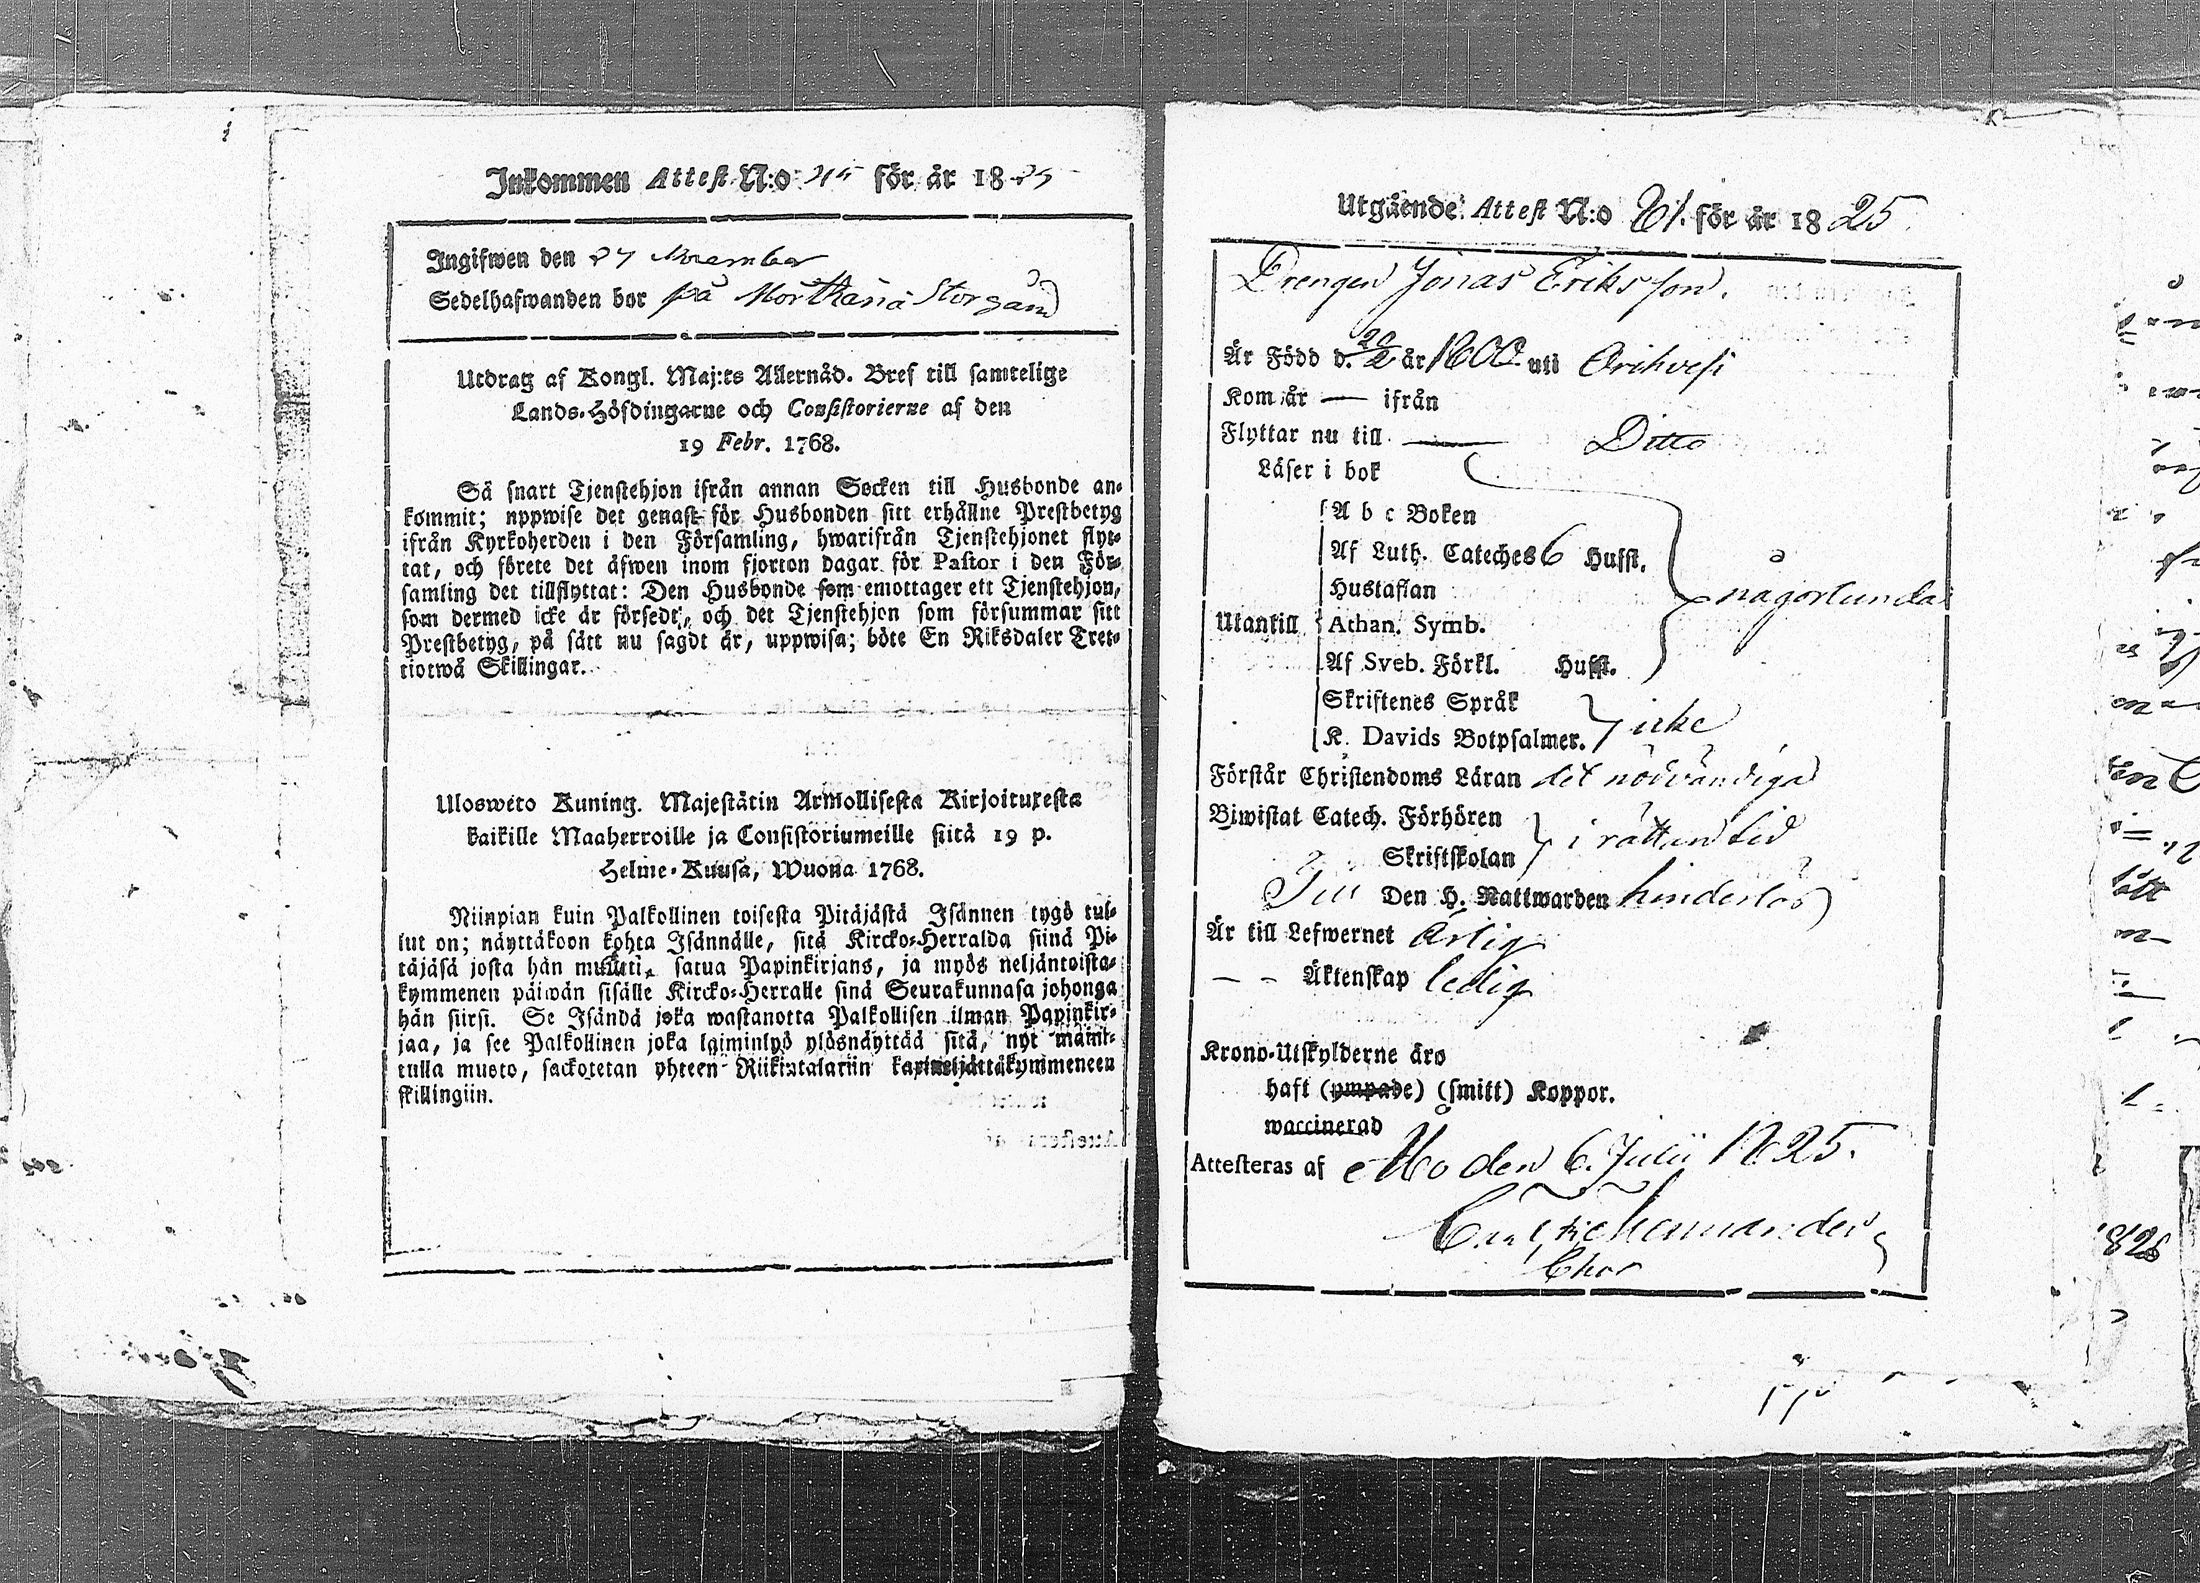 Inkommen Attest N:o 45 för år 1825
Ingifwen den 27 November
Sedelhafwanden bor på Storgård
Utdrag af Kongl. Maj:ts Allernåd. Bref till samtelige
Lands-Höfdingarne och Consistorierne af den
19 Febr. 1768.
Så snart Tjenstehjon ifrån annan Socken till Husbonde an-
kommit; uppwise det genast för Husbonden sitt erhållne Prestbetyg
ifrån Kyrkoherden i den Församling, hwarifrån Tjenstehjonet flyt-
tat, och förete det äfwen inom fjorton dagar för Pastor i den För-
samling det tillflyttat: Den Husbonde som emottager ett Tjenstehjon,
som dermed icke är försedt, och det Tjenstehjon som försummar sitt
Prestbetyg, på sätt nu sagdt är, uppwisa; böte En Riksdaler Tret-
tiotwå Skillingar.
Ulosweto Kuning. Majestätin Armollisesta Kirjoituxesta
kaikille Maaherroille ja Consistoriumeille siitä 19 p.
Helme-Kuusa, Wuona 1768.
Niinpian kuin Palkollinen toisesta Pitäjästä Isännen tygö tul-
lut on; näyttäkoon kohta Isännälle, sitä Kircko-Herralda siinä Pi-
täjäsä josta hän muutti, satua Papinkirjans, ja myös neljäntoista-
kymmenen päiwän sisälle Kircko-Herralle sinä Seurakunnasa johonga
hän siirsi. Se Isändä joka wastanotta Palkollisen ilman Papinkir-
jaa, ja see Palkollinen joka laiminlyö ylösnäyttää sitä, nyt mainit-
tulla muoto, sackotetan yhteen Riikintalariin
skillingiin.
Utgående Attest N:o 81. för år 1825.
Drengen Jonas Eriksson.
Är Född d. 20/2 år 1800 uti Orihvesi
Kom år — ifrån
Flyttar nu till — Ditto
Läser i bok
A b c Boken
Af Luth. Cateches 6 Hufst.
Hustaflan
någorlunda
Utantill Athan. Symb.
Af Sveb. Förkl. Hufst.
Skriftenes Språk
K. Davids Botpsalmer. icke
Förstår Christendoms Läran det nödvändiga
Biwistat Catech. Förhören
Skriftskolan i rättan tid
Till Den H. Nattwarden hinderlös
Är till Lefwernet ärlig
– – Äktenskap ledig
Krono-Utskylderne äro
haft (ympade) (smitt) Koppor.
waccinerad
Attesteras af Mo den 6. Julii 1825.